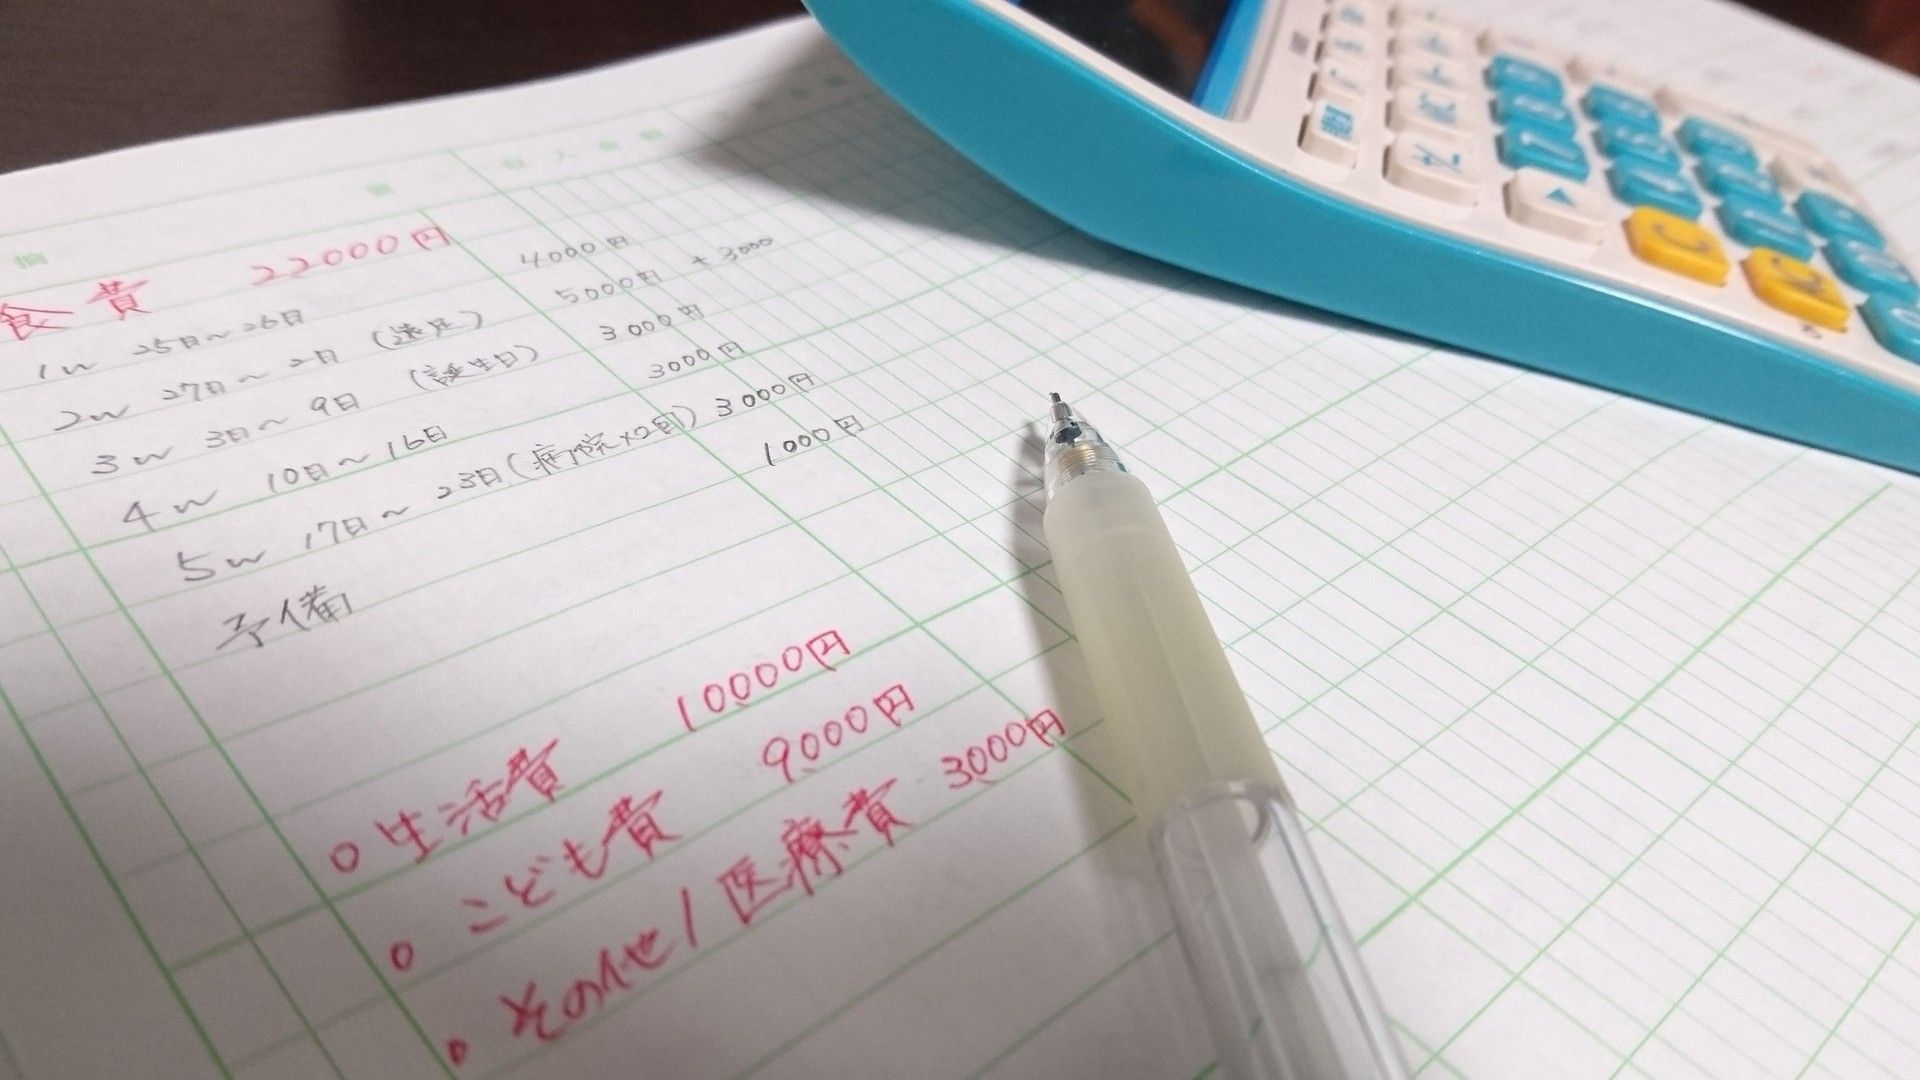 摘
食費 22000円
1w 25日〜26日 4000円
2w 27日〜2日 (遠足) 5000円 +3000
3w 3日〜9日 (誕生日) 3000円
4w 10日〜16日 3000円
5w 17日〜23日(病院×2回) 3000円
予備 1000円
○生活費 10000円
○こども費 9000円
○その他/医療費 3000円